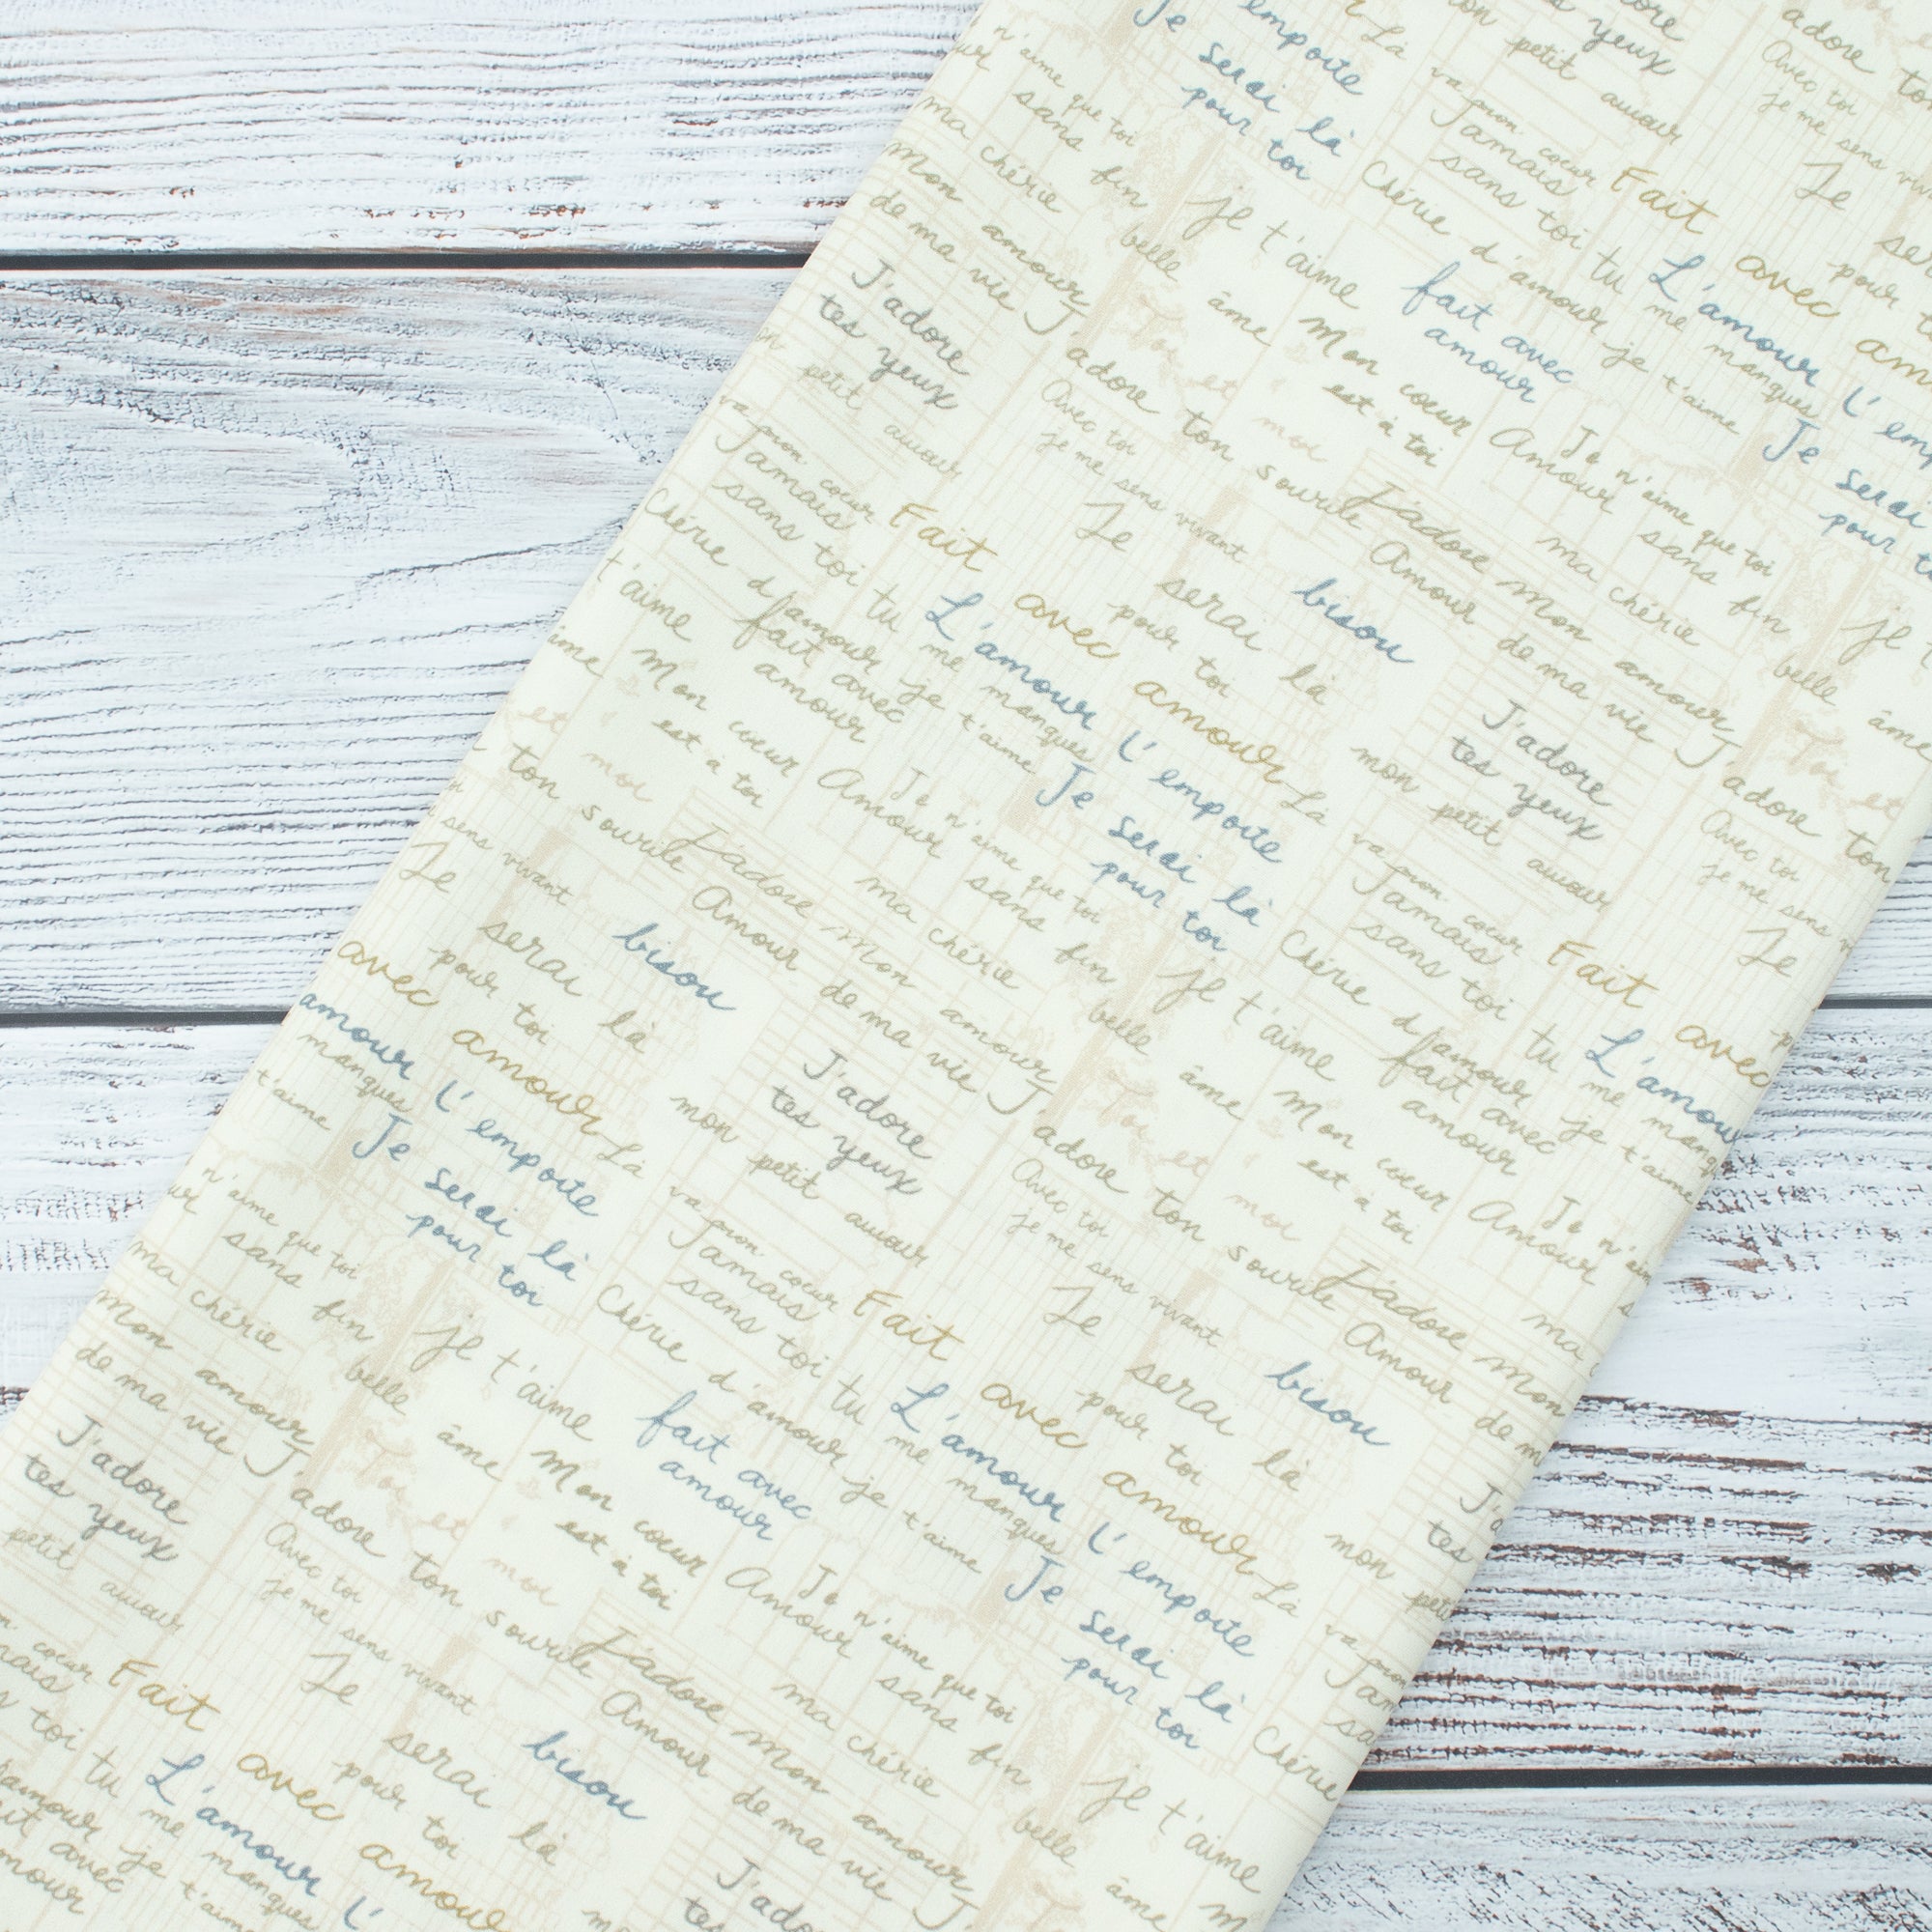 Je
serai là
pour toi
L'amour
l'emporte
J'adore
tes yeux
mon
petit
amour
Fait
avec
amour
Là
va mon coeur
Jamais
sans toi
tu
me manques
Chérie d'amour je t'aime
fait avec
amour
je t'aime
belle âme
Mon coeur
est à toi
Amour
sans fin
Je n'aime que toi
ma chérie
Mon amour
Amour
de ma vie
J'adore
J'adore ton sourire
Toi et moi
Avec toi
je me sens vivant
Je
serai là
pour toi
bisou